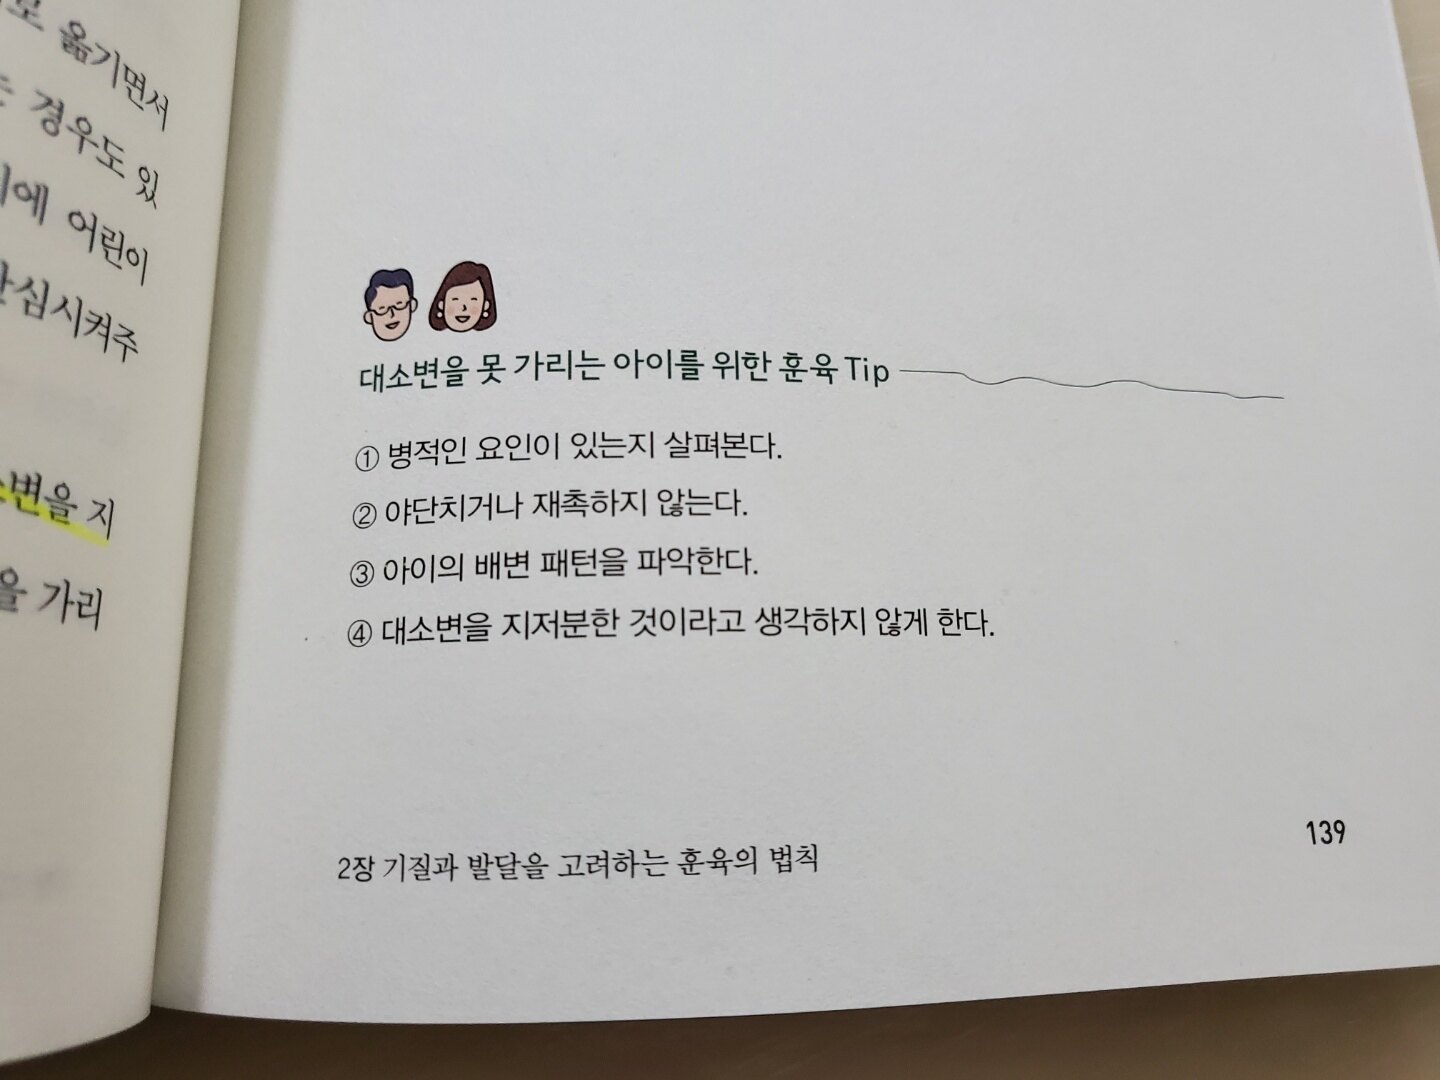 옮기면서
경우도 있
어린이
안심시켜주
소변을 지
을 가리
대소변을 못 가리는 아이를 위한 훈육 Tip
① 병적인 요인이 있는지 살펴본다.
② 야단치거나 재촉하지 않는다.
③ 아이의 배변 패턴을 파악한다.
④ 대소변을 지저분한 것이라고 생각하지 않게 한다.
2장 기질과 발달을 고려하는 훈육의 법칙
139